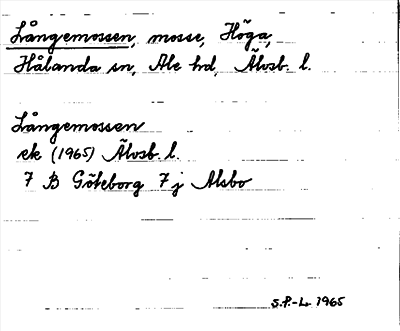 Långemossen, mosse, Höga,
Hålanda sn, Ale hd, Älvsb. l.
Långemossen
ek (1965) Älvsb. l.
7 B Göteborg 7 j Alsbo
S.P.-L. 1965